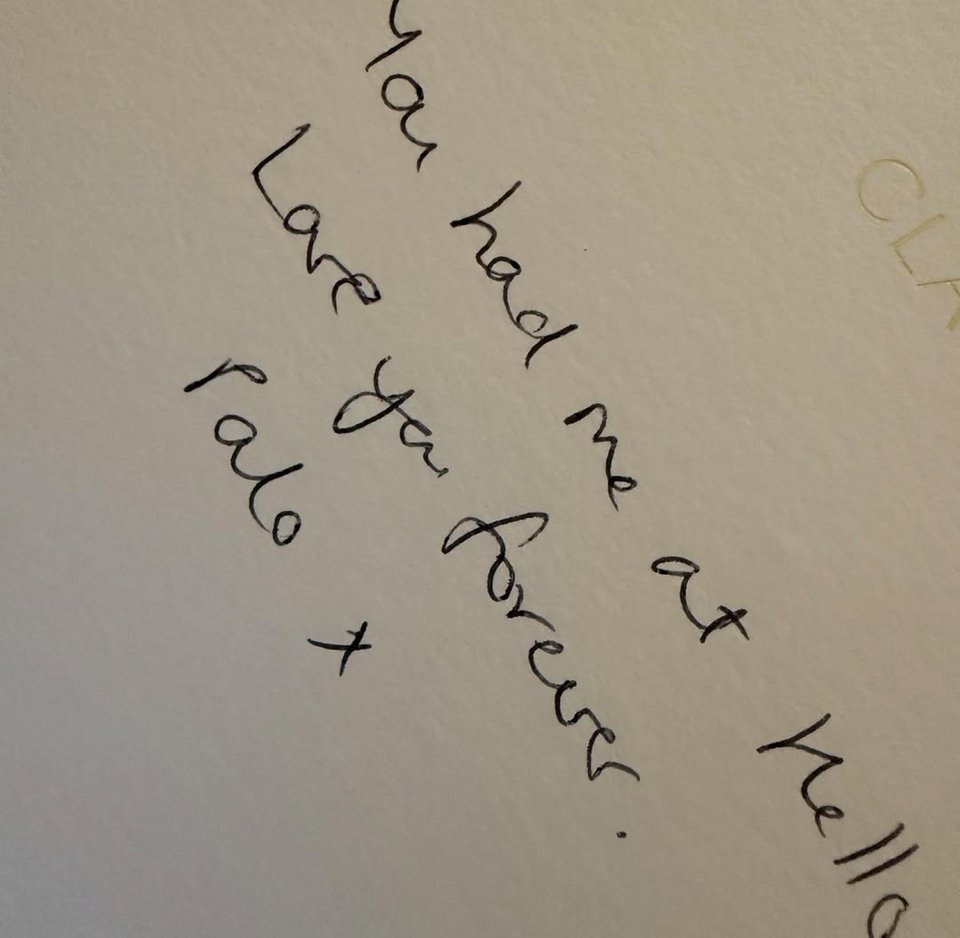 You had me at hello
Love you forever.
Palo x
CLA